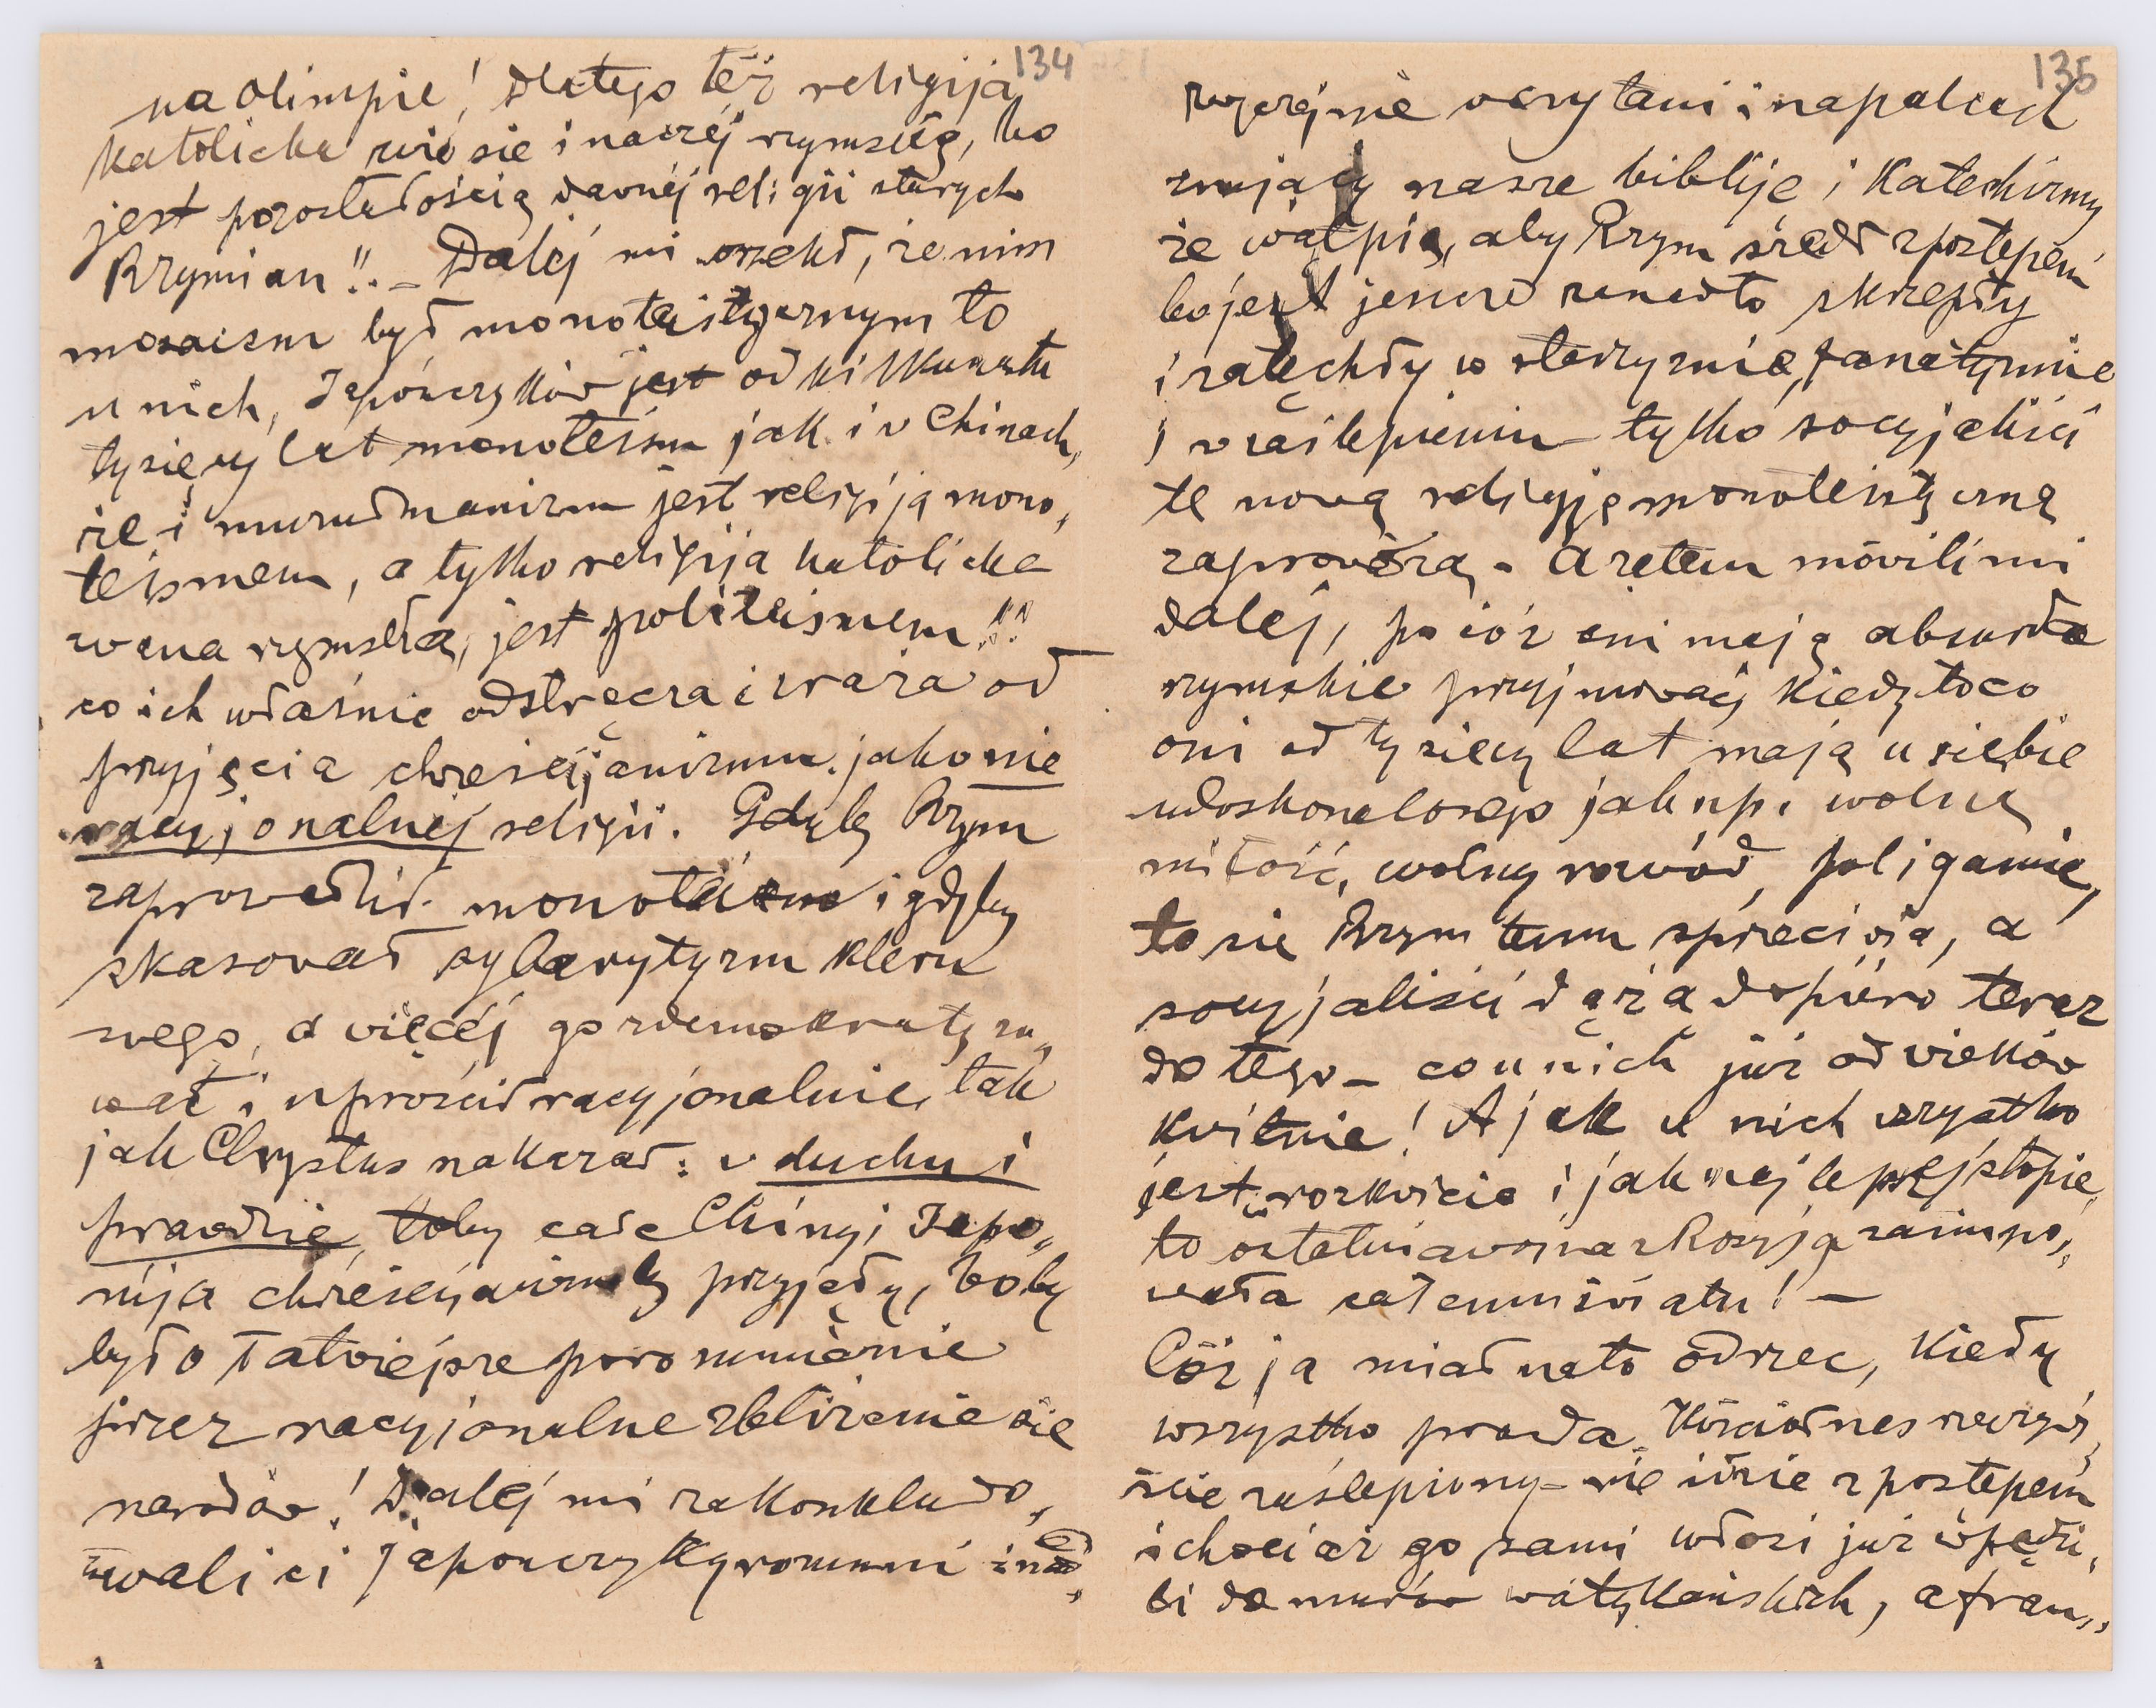 134
na Olimpie! Dlatego też religija
katolicka zwie się inaczéj rzymską, bo
jest pozostałością dawnéj religii starych
Rzymian!! – Daléj mi orzekł, że nim
mozaizm był monoteistycznym to
u nich, Japończyków jest od kilkunastu
tysięcy lat monoteism jak i w Chinach,
że i muzułmanizm jest religiją mono„
teismem, a tylko religija katolicka
zwana rzymska, jest politeismem!!
co ich właśnie odstręcza i zraża od
przyjęcia chrześcijanizmu jako nie
racyjonalnej religii. Gdyby Rzym
zaprowadził monoteizm i gdyby
skasował sybarytyzm kleru
swego, a więcéj go zdemokratyzo„
wał i uprościł racyjonalnie, tak
jak Chrystus nakazał: w duchu i
prawdzie, toby całe Chiny i Japo„
nija chrześcijanizm by przyjęły, boby
było łatwiéjsze porozumienie
przez racyjonalne zbliżenie się
narodów! Daléj mi zakonkludo„
wali ci Japończyky rozumni i nad„
135
zwyczéjnie oczytani i na palcach
znający nasze biblije i Katechizmy
że wątpią, aby Rzym szedł z postępem
bo jest jeszcze zanadto skrzepły
i zatęchły w starzyznie, fanatyzmie
i w zaślepieniu – tylko socyjaliści
tę nową religiję monoteistyczną
zaprowadzą. – A zatem mówili mi
daléj, po cóż oni mają absurda
rzymskie przyjmować, kiedy to co
oni od tysięcy lat mają u siebie
udoskonalonego jak np. wolną
miłość, wolny rozwód, poligamię,
to się Rzym temu sprzeciwia, a
socyjaliści dążą dopiéro teraz
do tego – co u nich już od wieków
kwitnie! A jak u nich wszystko
jest w rozkwicie i jak najlepszéj stopie,
to ostatnia wojna z Rosyją zaimpo„
wała całemu światu! –
Cóż ja miał na to odrzec, kiedy
wszystko prawda. Kościół nasz rzeczywi„
ście zaślepiony – nie idzie z postępem
i chociaż go sami włosi już wpędzi„
li do murów watykańskich, a fran„